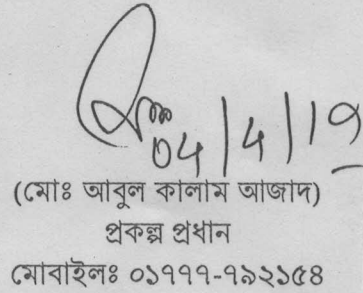 04/4/19
(মোঃ আবুল কালাম আজাদ)
প্রকল্প প্রধান
মোবাইলঃ ০১৭৭৭-৭৯২১৫৪